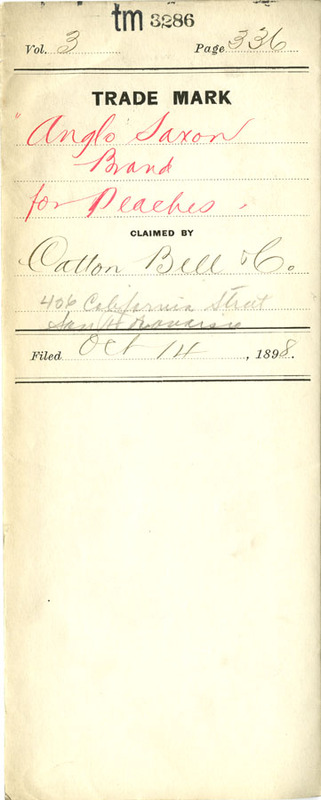 tm 3286
Vol. 3 Page 336
TRADE MARK
"Anglo Saxon
Brand
for Peaches.
CLAIMED BY
Catton Bell & Co.
406 California Street
San Francisco
Filed Oct 14, 1898.